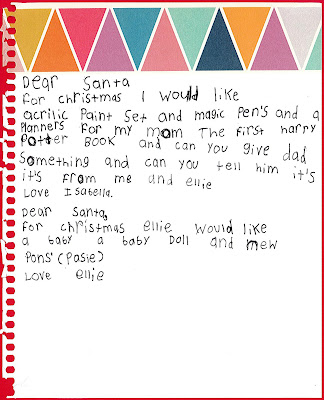 Dear Santa
For christmas I would like
acrilic Paint Set and magic Pen's and a
Planners For my mom The First harry
Potter BOOK and can you give dad
Something and can you tell him it's
it's From me and ellie
Love Isabella.
Dear Santa,
For christmas ellie would like
a baby a baby Doll and mew
Pons' (Posie)
Love ellie